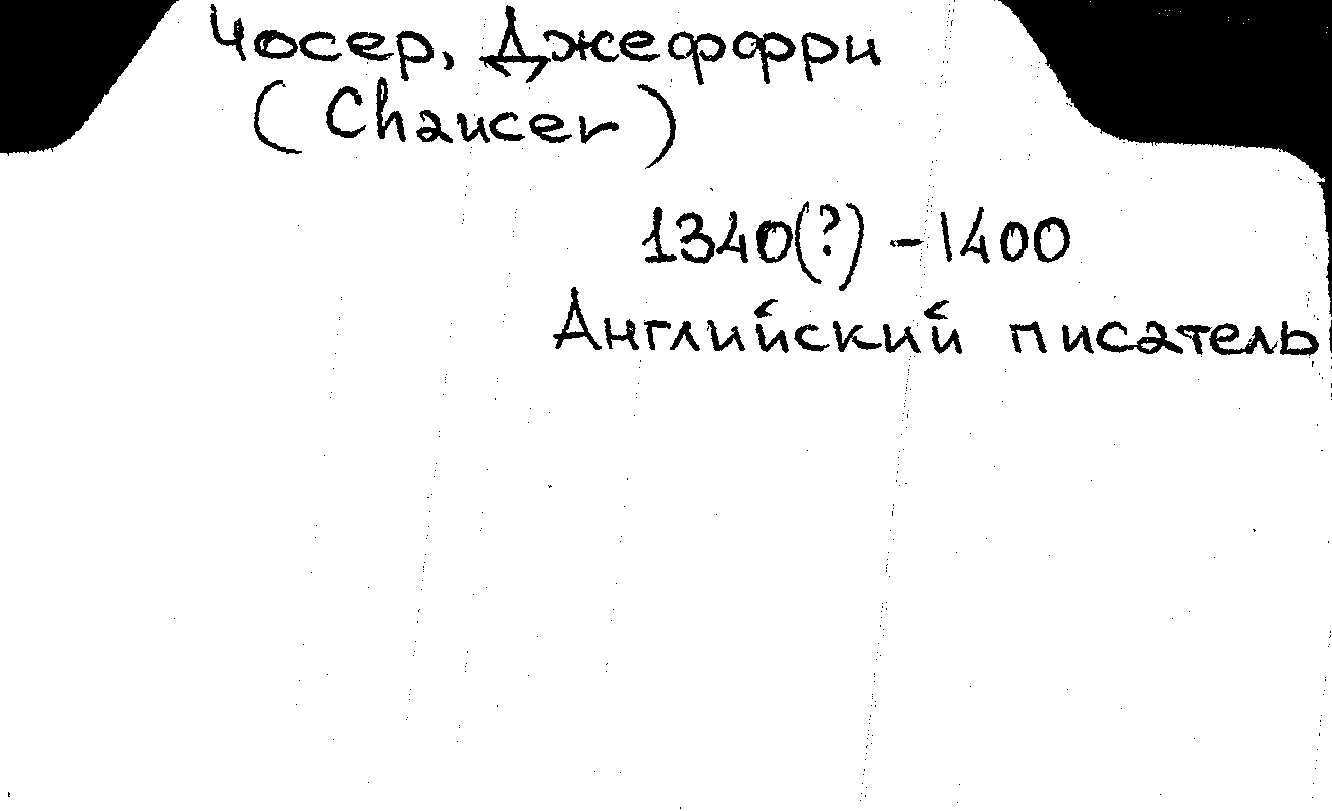 Чосер, Джеффри
(Chaucer)
1340(?) - 1400
Английский писатель